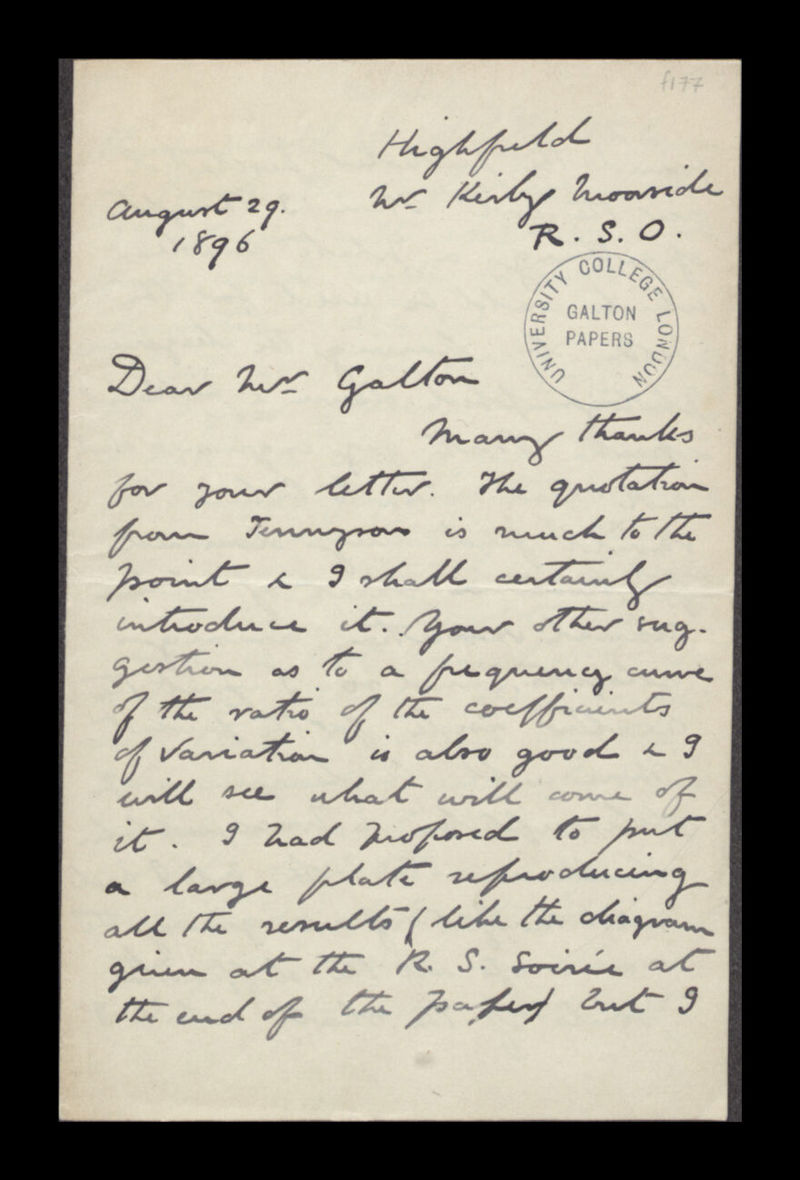 f177
Highfield
Nr Kirby Moorside
R. S. O.
August 29.
1896
UNIVERSITY COLLEGE LONDON
GALTON
PAPERS
Dear Mr Galton
Many thanks
for your letter. The quotation
from Tennyson is much to the
point & I shall certainly
introduce it. Your other sug-
gestion as to a frequency curve
of the ratio of the coefficients
of variation is also good & I
will see what will come of
it. I had proposed to put
a large plate reproducing
all the results (like the diagram
given at the R. S. Soirée at
the end of the paper) but I